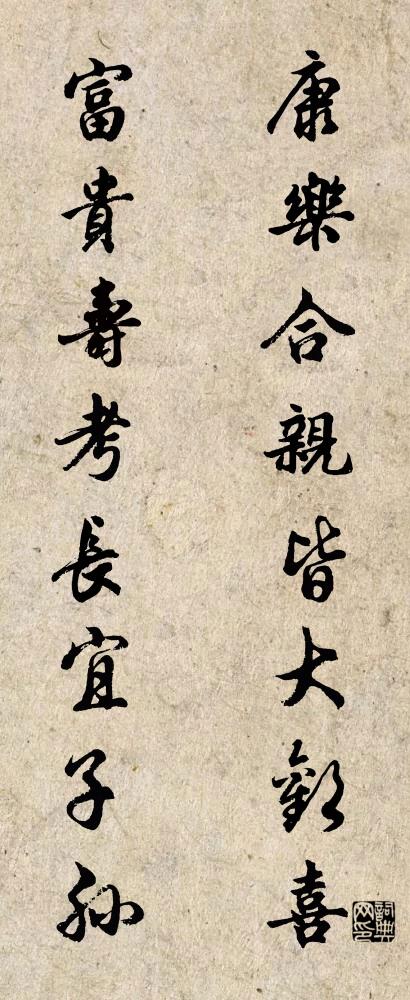 康樂合親皆大歡喜
富貴壽考長宜子孫
詞典网印